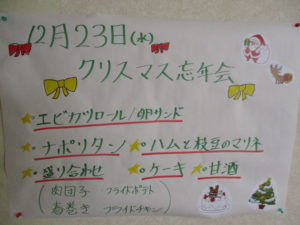 12月23日(水)
クリスマス忘年会
エビカツロール/卵サンド
ナポリタン ハムと枝豆のマリネ
盛り合わせ ケーキ 甘酒
(肉団子 フライドポテト
春巻き フライドチキン)